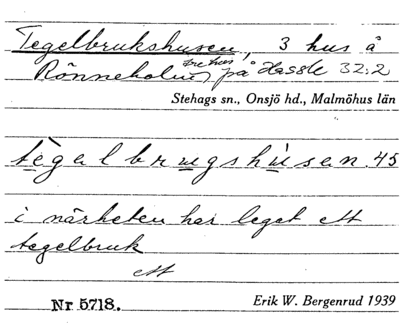 Tegelbrukshusen, 3 hus å
tre hus
Rönneholm, på Hassle 32:2
Stehags sn., Onsjö hd., Malmöhus län
tègalbrugshùsan. 45
i närheten har legat ett
tegelbruk
ett
Nr 5718.
Erik W. Bergenrud 1939